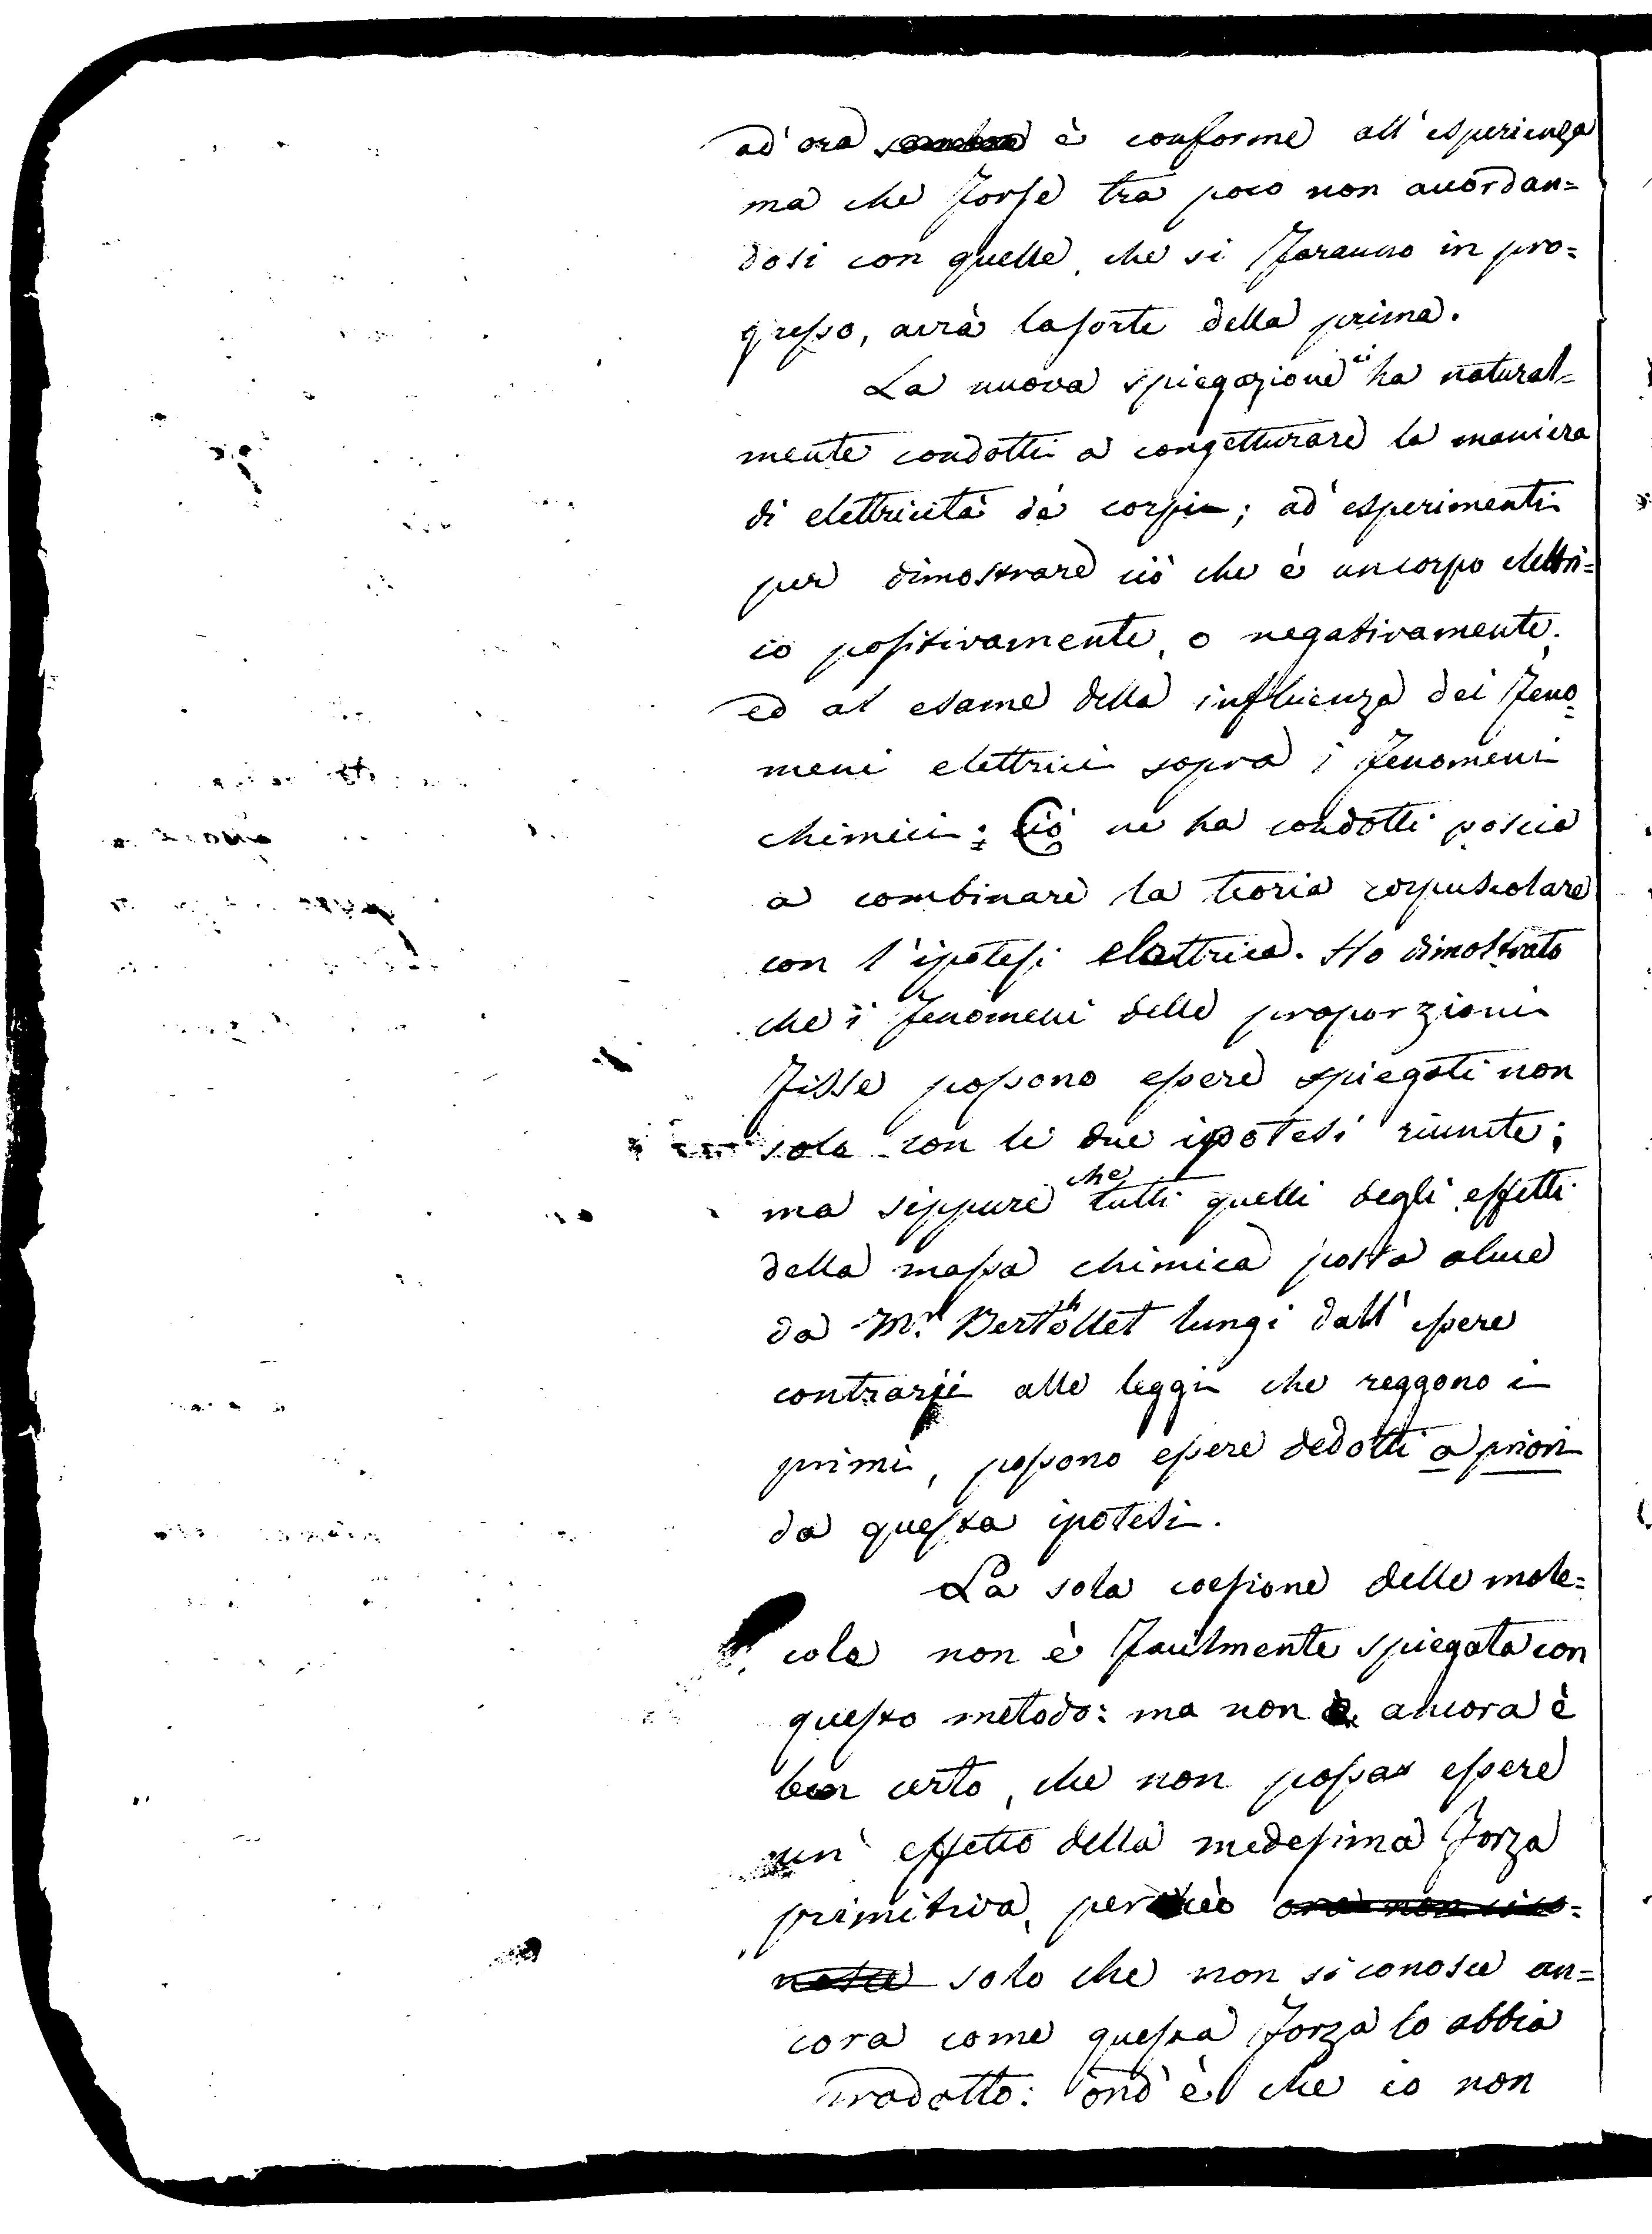 ad' ora sembra è conforme all' esperienza
ma che forse tra poco non accordan=
dosi con quelle, che si faranno in pro=
gresso, avrà la sorte della prima.
La nuova spiegazione ci ha natural=
mente condotti a congetturare la maniera
di elettricità dé corpi; ad' esperimenti
per dimostrare ciò che è un corpo elettri=
co positivamente, o negativamente;
ed al esame della influenza dei feno=
meni elettrici sopra i fenomeni
chimici; Ciò ne ha condotti poscia
a combinare la teoria corpuscolare
con l'ipotesi elettrica. Ho dimostrato
che i fenomeni delle proporzioni
fisse possono essere spiegati non
solo con le due ipotesi riunite;
ma sippure che tutti quelli degli effetti
della massa chimica posta aluce
da Mr. Berthollet lungi dall' essere
contrarii alle leggi che reggono i
primi, possono essere dedotti a priori
da questa ipotesi.
La sola coesione delle mole=
cole non è facilmente spiegata con
questo metodo: ma non ancora è
ben certo, che non possa essere
un' effetto della medesima forza
primitiva, perciò ora non si co=
nosce solo che non si conosce an=
cora come questa forza lo abbia
prodotto: ond' è che io non